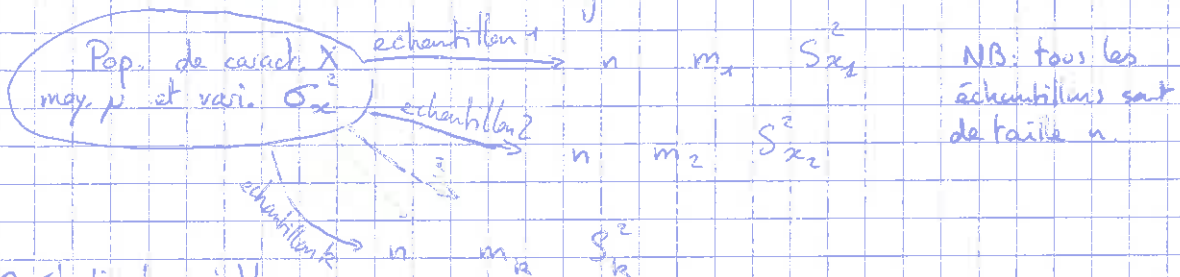 Pop. de caract. X
moy. μ et vari. σₓ²
echantillon 1 n m₁ S²ₓ₁
echantillon 2 n m₂ S²ₓ₂
echantillon k n mₖ S²ₖ
NB: tous les
échantillons sont
de taille n.